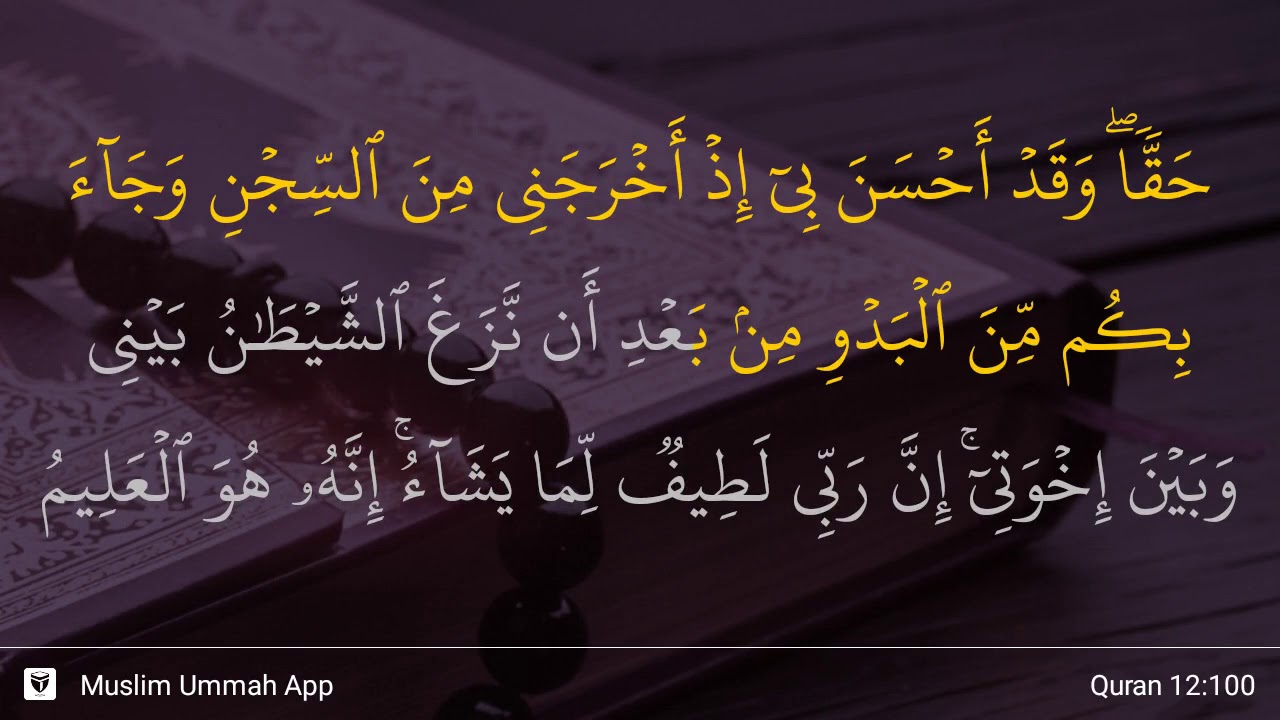 حَقࣰّاۖ وَقَدۡ أَحۡسَنَ بِيٓ إِذۡ أَخۡرَجَنِي مِنَ ٱلسِّجۡنِ وَجَآءَ
بِكُم مِّنَ ٱلۡبَدۡوِ مِنۢ بَعۡدِ أَن نَّزَغَ ٱلشَّيۡطَٰنُ بَيۡنِي
وَبَيۡنَ إِخۡوَتِيٓۚ إِنَّ رَبِّي لَطِيفࣱ لِّمَا يَشَآءُۚ إِنَّهُۥ هُوَ ٱلۡعَلِيمُ
Muslim Ummah App
Quran 12:100